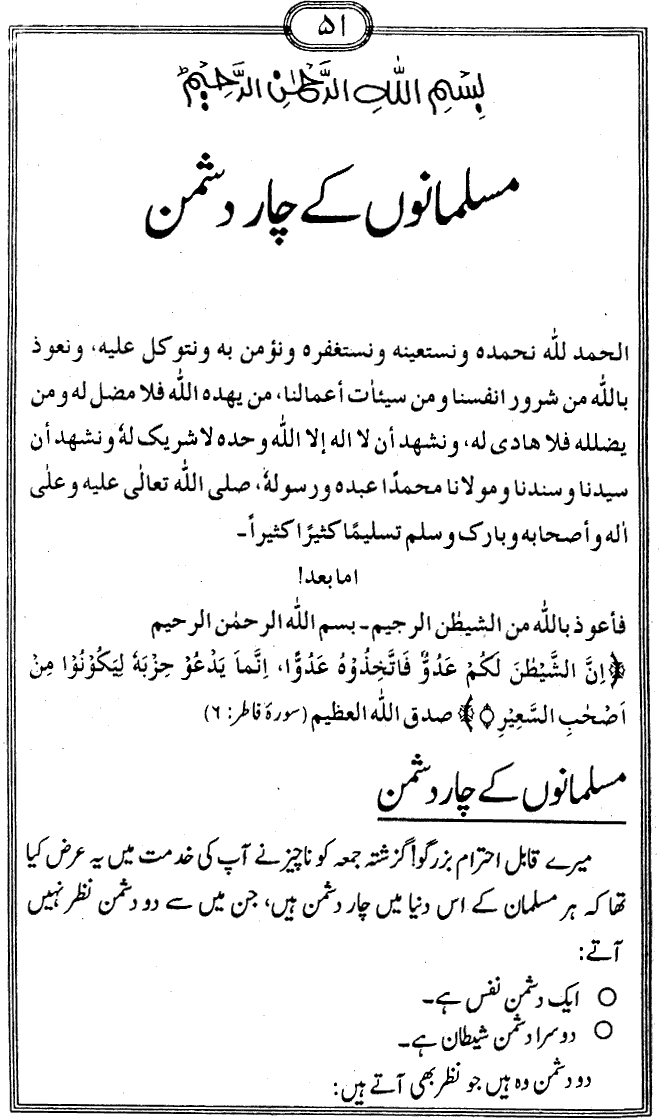 ۵۱
بِسْمِ اللهِ الرَّحْمٰنِ الرَّحِيْمِ
مسلمانوں کے چار دشمن
الحمد لله نحمده ونستعينه ونستغفره ونؤمن به ونتوكل عليه، ونعوذ
بالله من شرور انفسنا ومن سيئاٰت أعمالنا، من يهده الله فلا مضل له ومن
يضلله فلا هادى له، ونشهد أن لا اله إلا الله وحده لا شريک لهٗ ونشهد أن
سيدنا وسندنا ومولانا محمدًا عبده ورسولهٗ، صلى الله تعالٰى عليه وعلٰى
اٰله وأصحابه وبارک وسلم تسليمًا كثيرًا كثيراً۔
اما بعد!
فأعوذ بالله من الشيطٰن الرجيم۔ بسم الله الرحمٰن الرحيم
﴿اِنَّ الشَّيْطٰنَ لَكُمْ عَدُوٌّ فَاتَّخِذُوْهُ عَدُوًّا، اِنَّماَ يَدْعُوْ حِزْبَهٗ لِيَكُوْنُوْا مِنْ
اَصْحٰبِ السَّعِيْرِ۝﴾ صدق الله العظيم (سورۃ فاطر: ۶)
مسلمانوں کے چار دشمن
میرے قابل احترام بزرگو! گزشتہ جمعہ کو ناچیز نے آپ کی خدمت میں یہ عرض کیا
تھا کہ ہر مسلمان کے اس دنیا میں چار دشمن ہیں، جن میں سے دو دشمن نظر نہیں
آتے:
○ ایک دشمن نفس ہے۔
○ دوسرا دشمن شیطان ہے۔
دو دشمن وہ ہیں جو نظر بھی آتے ہیں: